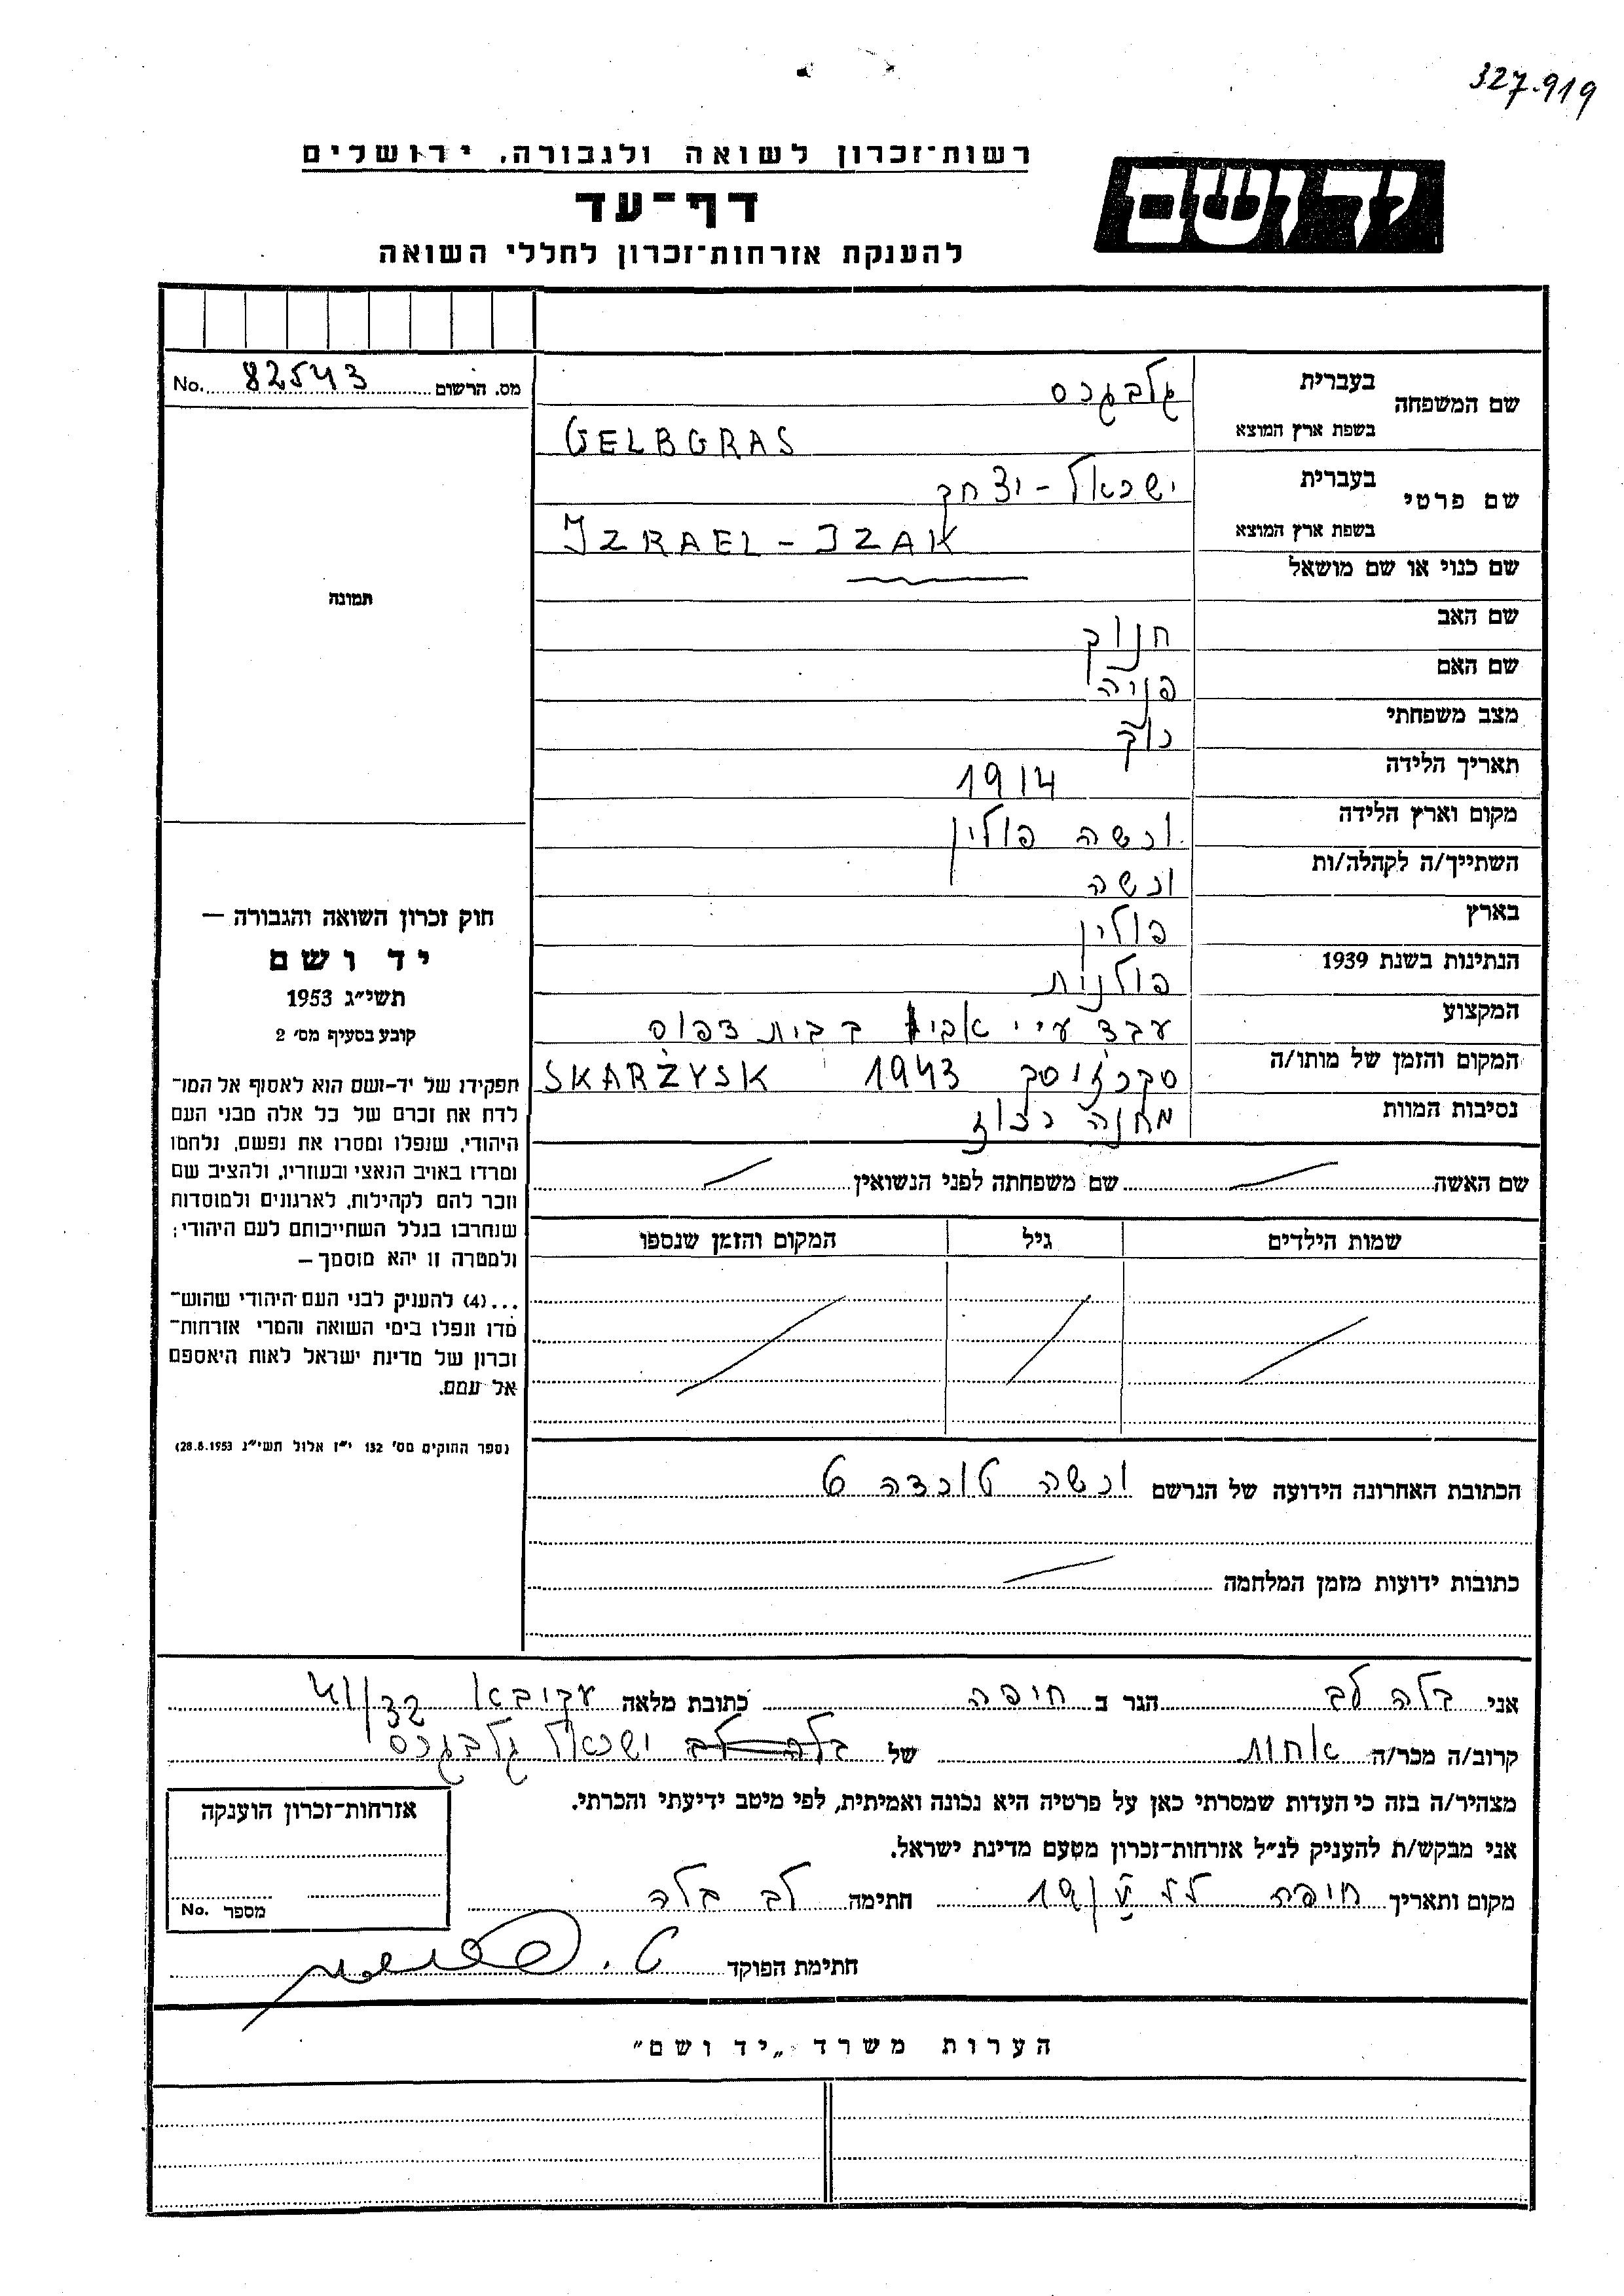 327.919
יד ושם
רשות-זכרון לשואה ולגבורה, ירושלים
דף-עד
להענקת אזרחות-זכרון לחללי השואה
מס. הרשום 82543 No.
שם המשפחה
בעברית גלבגרס
בשפת ארץ המוצא GELBGRAS
שם פרטי
בעברית ישראל - יצחק
בשפת ארץ המוצא IZRAEL - IZAK
שם כנוי או שם מושאל
שם האב חנוך
שם האם פניה
מצב משפחתי רווק
תאריך הלידה 1914
מקום וארץ הלידה ורשה פולין
השתייך/ה לקהלה/ות ורשה
בארץ פולין
הנתינות בשנת 1939 פולנית
המקצוע עבד ע"י אביו בבית דפוס
המקום והזמן של מותו/ה סקרז'יסק 1943 SKARŻYSK
נסיבות המוות מחנה ריכוז
תמונה
חוק זכרון השואה והגבורה —
יד ושם
תשי"ג 1953
קובע בסעיף מס' 2
תפקידו של יד-ושם הוא לאסוף אל המו־
לדת את זכרם של כל אלה מבני העם
היהודי, שנפלו ומסרו את נפשם, נלחמו
ומרדו באויב הנאצי ובעוזריו, ולהציב שם
וזכר להם לקהילות, לארגונים ולמוסדות
שנחרבו בגלל השתייכותם לעם היהודי;
ולמטרה זו יהא מוסמך —
...(4) להעניק לבני העם היהודי שהוש־
מדו ונפלו בימי השואה והמרי אזרחות־
זכרון של מדינת ישראל לאות היאספם
אל עמם.
(ספר החוקים מס' 132 י"ז אלול תשי"ג 28.8.1953)
שם האשה שם משפחתה לפני הנשואין
שמות הילדים גיל המקום והזמן שנספו
הכתובת האחרונה הידועה של הנרשם ורשה טורדה 6
כתובות ידועות מזמן המלחמה
אני בלה לב הגר ב חיפה כתובת מלאה עקיבא 41/32
קרוב/ה מכר/ה אחות של ישראל גלבגרס
מצהיר/ה בזה כי העדות שמסרתי כאן על פרטיה היא נכונה ואמיתית, לפי מיטב ידיעתי והכרתי.
אני מבקש/ת להעניק לנ"ל אזרחות-זכרון מטעם מדינת ישראל.
מקום ותאריך חיפה חתימה לב בלה
חתימת הפוקד
אזרחות-זכרון הוענקה
מספר No.
הערות משרד „יד ושם"